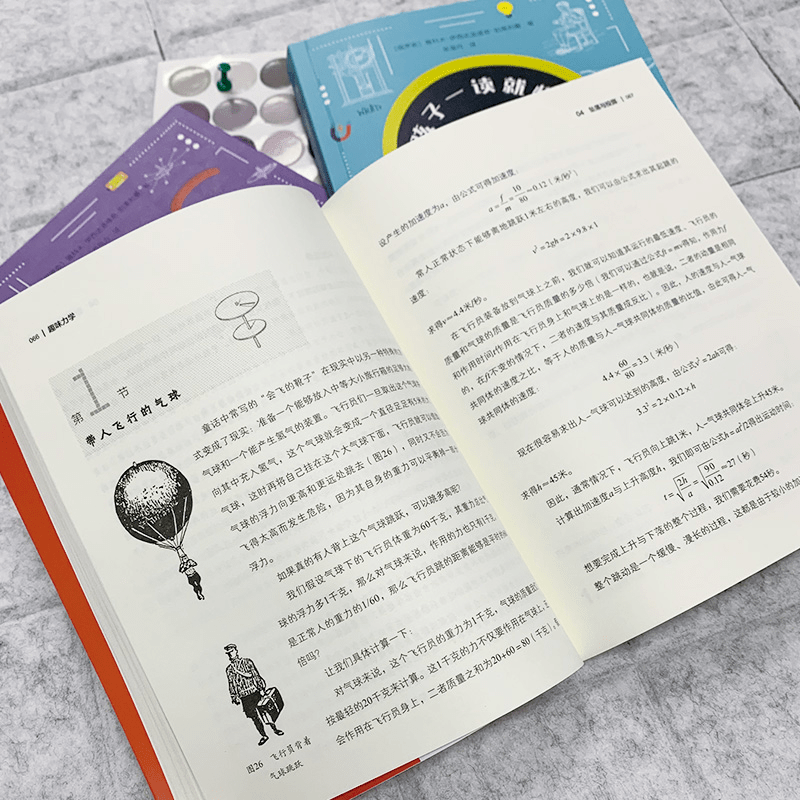 066 | 趣味力学
第 1 节
带人飞行的气球
童话中常写的“会飞的靴子”在现实中以另一种特殊
式变成了现实：准备一个能够放入中等大小旅行箱的足够
气球和一个能产生氢气的装置。飞行员们一旦取出这个气
向其中充入氢气，这个气球就会变成一个直径足足有
气球，这时再将自己挂在这个大气球下面，飞行员就可以
气球的浮力向更高和更远处跳去（图26），同时又不会
飞得太高而发生危险，因为其自身的重力可以平衡掉一部
浮力。
如果真的有人背上这个气球跳跃，可以跳多高呢？
我们假设气球下的飞行员体重为60千克，其重力比
球的浮力多1千克，那么对气球来说，作用的力也只有1千
是正常人的重力的1/60，那么飞行员跳的距离能够是平时的
倍吗？
让我们具体计算一下：
对气球来说，这个飞行员的重力为1千克，气球的质量
按最轻的20千克来计算。这1千克的力不仅要作用在气球上，
会作用在飞行员身上，二者质量之和为20+60=80（千克），
图26 飞行员背着
气球跳跃
04 | 067
设产生的加速度为a，由公式可得加速度：
a=f/m=10/80≈0.12（米/秒²）
常人正常状态下能够离地跳跃1米左右的高度，我们可以由公式求出其起跳的
速度：
v²=2gh=2×9.8×1
求得v≈4.4米/秒。
在飞行员装备放到气球上之前，我们就可以知道其运行的最低速度，飞行员的
质量和气球的质量是飞行员质量的多少倍（我们可以通过公式ft=mv得知，作用力f
和作用时间t作用在飞行员身上和气球上的是一样的，也就是说，二者的动量是相同
的，在ft不变的情况下，二者的速度与其质量成反比）。因此，人的速度与人－气球
共同体的速度之比，等于人的质量与人－气球共同体的质量的比值，由此可得人－气
球共同体的速度：
4.4×60/80=3.3（米/秒）
现在很容易求出人－气球可以达到的高度，由公式v²=2ah可得：
3.3²=2×0.12×h
求得h≈45米。
因此，通常情况下，飞行员向上跳1米，人－气球共同体会上升45米。
计算出加速度a与上升高度h，我们即可由公式h=at²/2得出运动时间：
t=√(2h/a)=√(90/0.12)≈27（秒）
想要完成上升与下落的整个过程，我们需要花费54秒。
整个跳动是一个缓慢、漫长的过程，这都是由于较小的加
孩子一读就